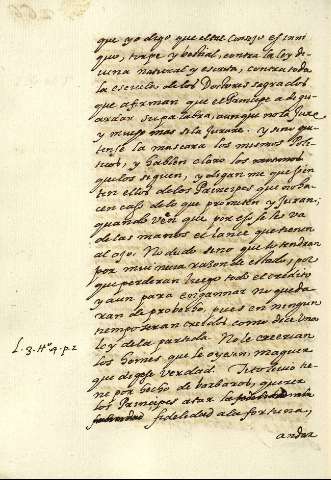 que yo digo que este Consejo es ini
quo, torpe y bestial, contra la ley di
uina natural y escrita, contra toda
la escuela de los Doctores sagrados
que afirman que el Principe a de gu
ardar su palabra, aunque no la Jure
y mucho mas si la Jurare. y sino qui
tense la mascara los mismos Poli
ticos, y hablen claro los mismos
que los siguen, y digan me que sien
ten ellos de los Principes que no ha
cen caso de lo que prometen y Juran;
quando ven que por esso se les va
de las manos el lance que tienen
al ojo. No dudo sino que lo tendran
por mui mala razon de estado, por
que perderan luego todo el credito
y aun para engannar no queda
ran de probecho, pues en ningun
tiempo seran creidos como dice una
L. 3. tto 4. p. 2
ley de la partida. No le creerian
los homes que le oyesen, maguer
que dixese verdad. Teodorico tie
ne por hecho de barbaros, querer
los Principes atar la
fidelidad a la fortuna,
andar